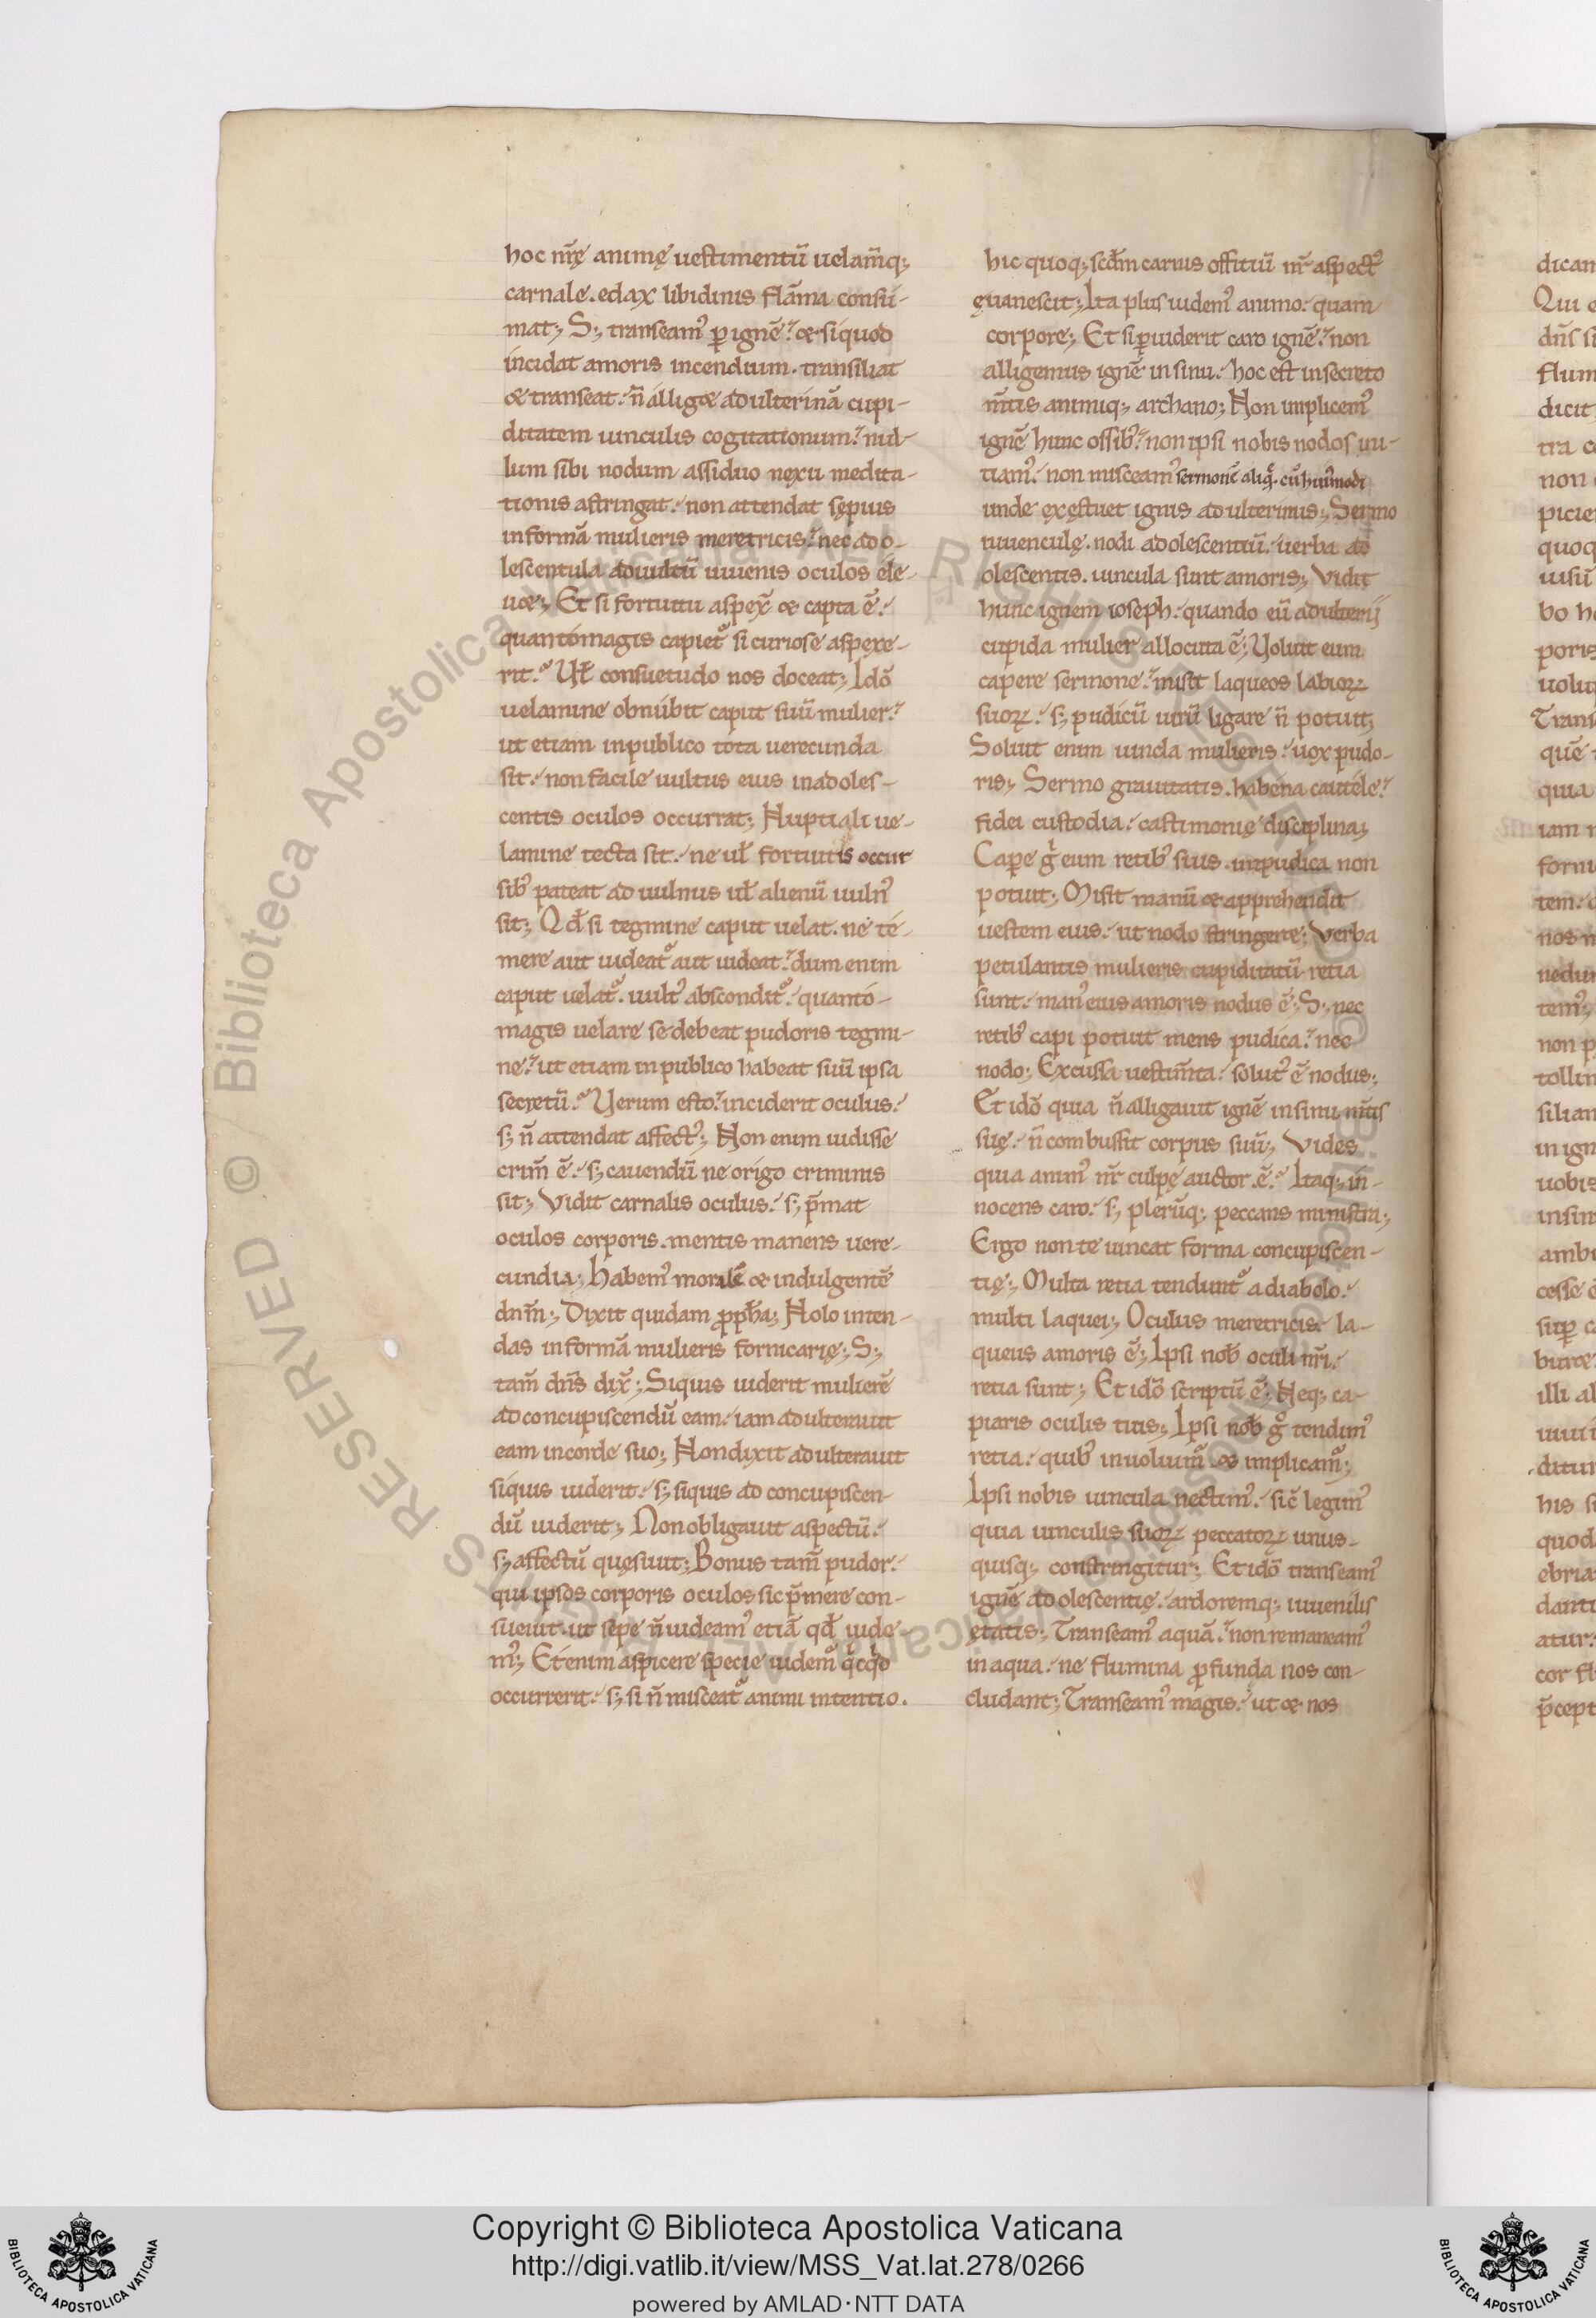 hoc nr̄ę animę uestimentū uelam̄q;
carnale. edax libidinis flāma consu-
mat; S; transeam᾽ p̱ ignē. & siquod
incidat amoris incendium. transiliat
& transeat. n̄ allig& adulterinā cupi-
ditatem uinculis cogitationum. nul-
lum sibi nodum assiduo nexu medita-
tionis astringat. non attendat sępius
in formā mulieris meretricis. nec ado-
lescentula ad uultū iuuenis oculos ele-
u&; Et si fortuitu aspex̄ & capta ē.
quantomagis capiet᾽ si curiose aspexe-
rit. Uł consuetudo nos doceat; Idō
uelamine obnubit caput suū mulier.
ut etiam in publico tota uerecunda
sit. non facile uultus eius in adoles-
centis oculos occurrat; Nuptiali ue-
lamine tecta sit. ne uł fortuitis occur
sib᾽ pateat ad uulnus uł alienū uuln᾽
sit; Qđ si tegmine caput uelat. ne te-
mere aut uideat᾽ aut uideat. dum enim
caput uelat᾽. uult᾽ abscondit᾽. quanto-
magis uelare se debeat pudoris tegmi-
ne. ut etiam in publico habeat suū ipsa
secretū. Uerum esto. inciderit oculus.
s; n̄ attendat affect᾽; Non enim uidisse
crim̄ ē. s; cauendū ne origo criminis
sit; Vidit carnalis oculus. s; p̄mat
oculos corporis. mentis manens uere-
cundia; Habem᾽ moralē & indulgentē
dnm̄; Dixit quidam pp̄ha; Nolo inten-
das in formā mulieris fornicarię; S;
tam̄ dn̄s dix̄; Siquis uiderit mulierē
ad concupiscendū eam. iam adulterauit
eam in corde suo; Non dixit adulterauit
siquis uiderit. s; siquis ad concupiscen-
dū uiderit; Non obligauit aspectū.
s; affectū quęsiuit; Bonus tam̄ pudor.
qui ipsos corporis oculos sic p̄mere con-
sueuit. ut sepe n̄ uideam᾽ etiā qđ uide-
m᾽; Etenim aspicere specie uidem᾽ q͛cq͛d
occurrerit. s; si n̄ misceat᾽ animi intentio.
hic quoq; scđm carnis offitiū nr̄ aspect᾽
ęuanescit; Ita plus uidem᾽ animo. quam
corpore; Et si p̱uiderit caro ignē. non
alligemus ignē in sinu. hoc est in secreto
m̄tis animiq; archano; Non implicem᾽
ignē hunc ossib᾽. non ipsi nobis nodos ini-
tiam᾽. non misceam᾽ sermonē aliq͛. cū huius modi
unde exęstuet ignis adulterinus; Sermo
iuuenculę. nodi adolescentiū. uerba ad
olescentis. uincula sunt amoris; Vidit
hunc ignem ioseph. quando eū adulterij
cupida mulier allocuta ē; Voluit eum
capere sermone. misit laqueos labioꝝ
suoꝝ. s; pudicū uirū ligare n̄ potuit;
Soluit enim uincla mulieris. uox pudo-
ris; Sermo grauitatis. habena cautele.
fidei custodia. castimonię disciplina;
Cap̱e g͛ eum retib᾽ suis. impudica non
potuit; Misit manū & apprehendit
uestem eius. ut nodo stringeret; Verba
petulantis mulieris cupiditatū retia
sunt. man᾽ eius amoris nodus ē; S; nec
retib᾽ capi potuit mens pudica. nec
nodo; Excussa uestim̄ta. solut᾽ ē nodus;
Et idō quia n̄ alligauit ignē in sinu m̄tis
suę. n̄ combussit corpus suū; Vides
quia anim᾽ nr̄ culpę auctor ē. Itaq; in-
nocens caro. s; plerūq; peccans ministra;
Ergo non te uincat forma concupiscen-
tię; Multa retia tendunt᾽ a diabolo.
multi laquei; Oculus meretricis. la-
queus amoris ē; Ipsi nob̄ oculi nr̄i.
retia sunt; Et idō scriptū ē; Neq; ca-
piaris oculis tuis; Ipsi nob̄ g͛ tendim᾽
retia. quib᾽ inuoluim᾽ & implicam᾽;
Ipsi nobis uincula nectim᾽. sic̄ legim᾽
quia uinculis suoꝝ peccatoꝝ unus-
quisq; constringitur; Et idō transeam᾽
ignē adolescentię. ardoremq; iuuenilis
ętatis; Transeam᾽ aquā. non remaneam᾽
in aqua. ne flumina p̱funda nos con-
cludant; Transeam᾽ magis. ut & nos
Copyright © Biblioteca Apostolica Vaticana
http://digi.vatlib.it/view/MSS_Vat.lat.278/0266
powered by AMLAD·NTT DATA